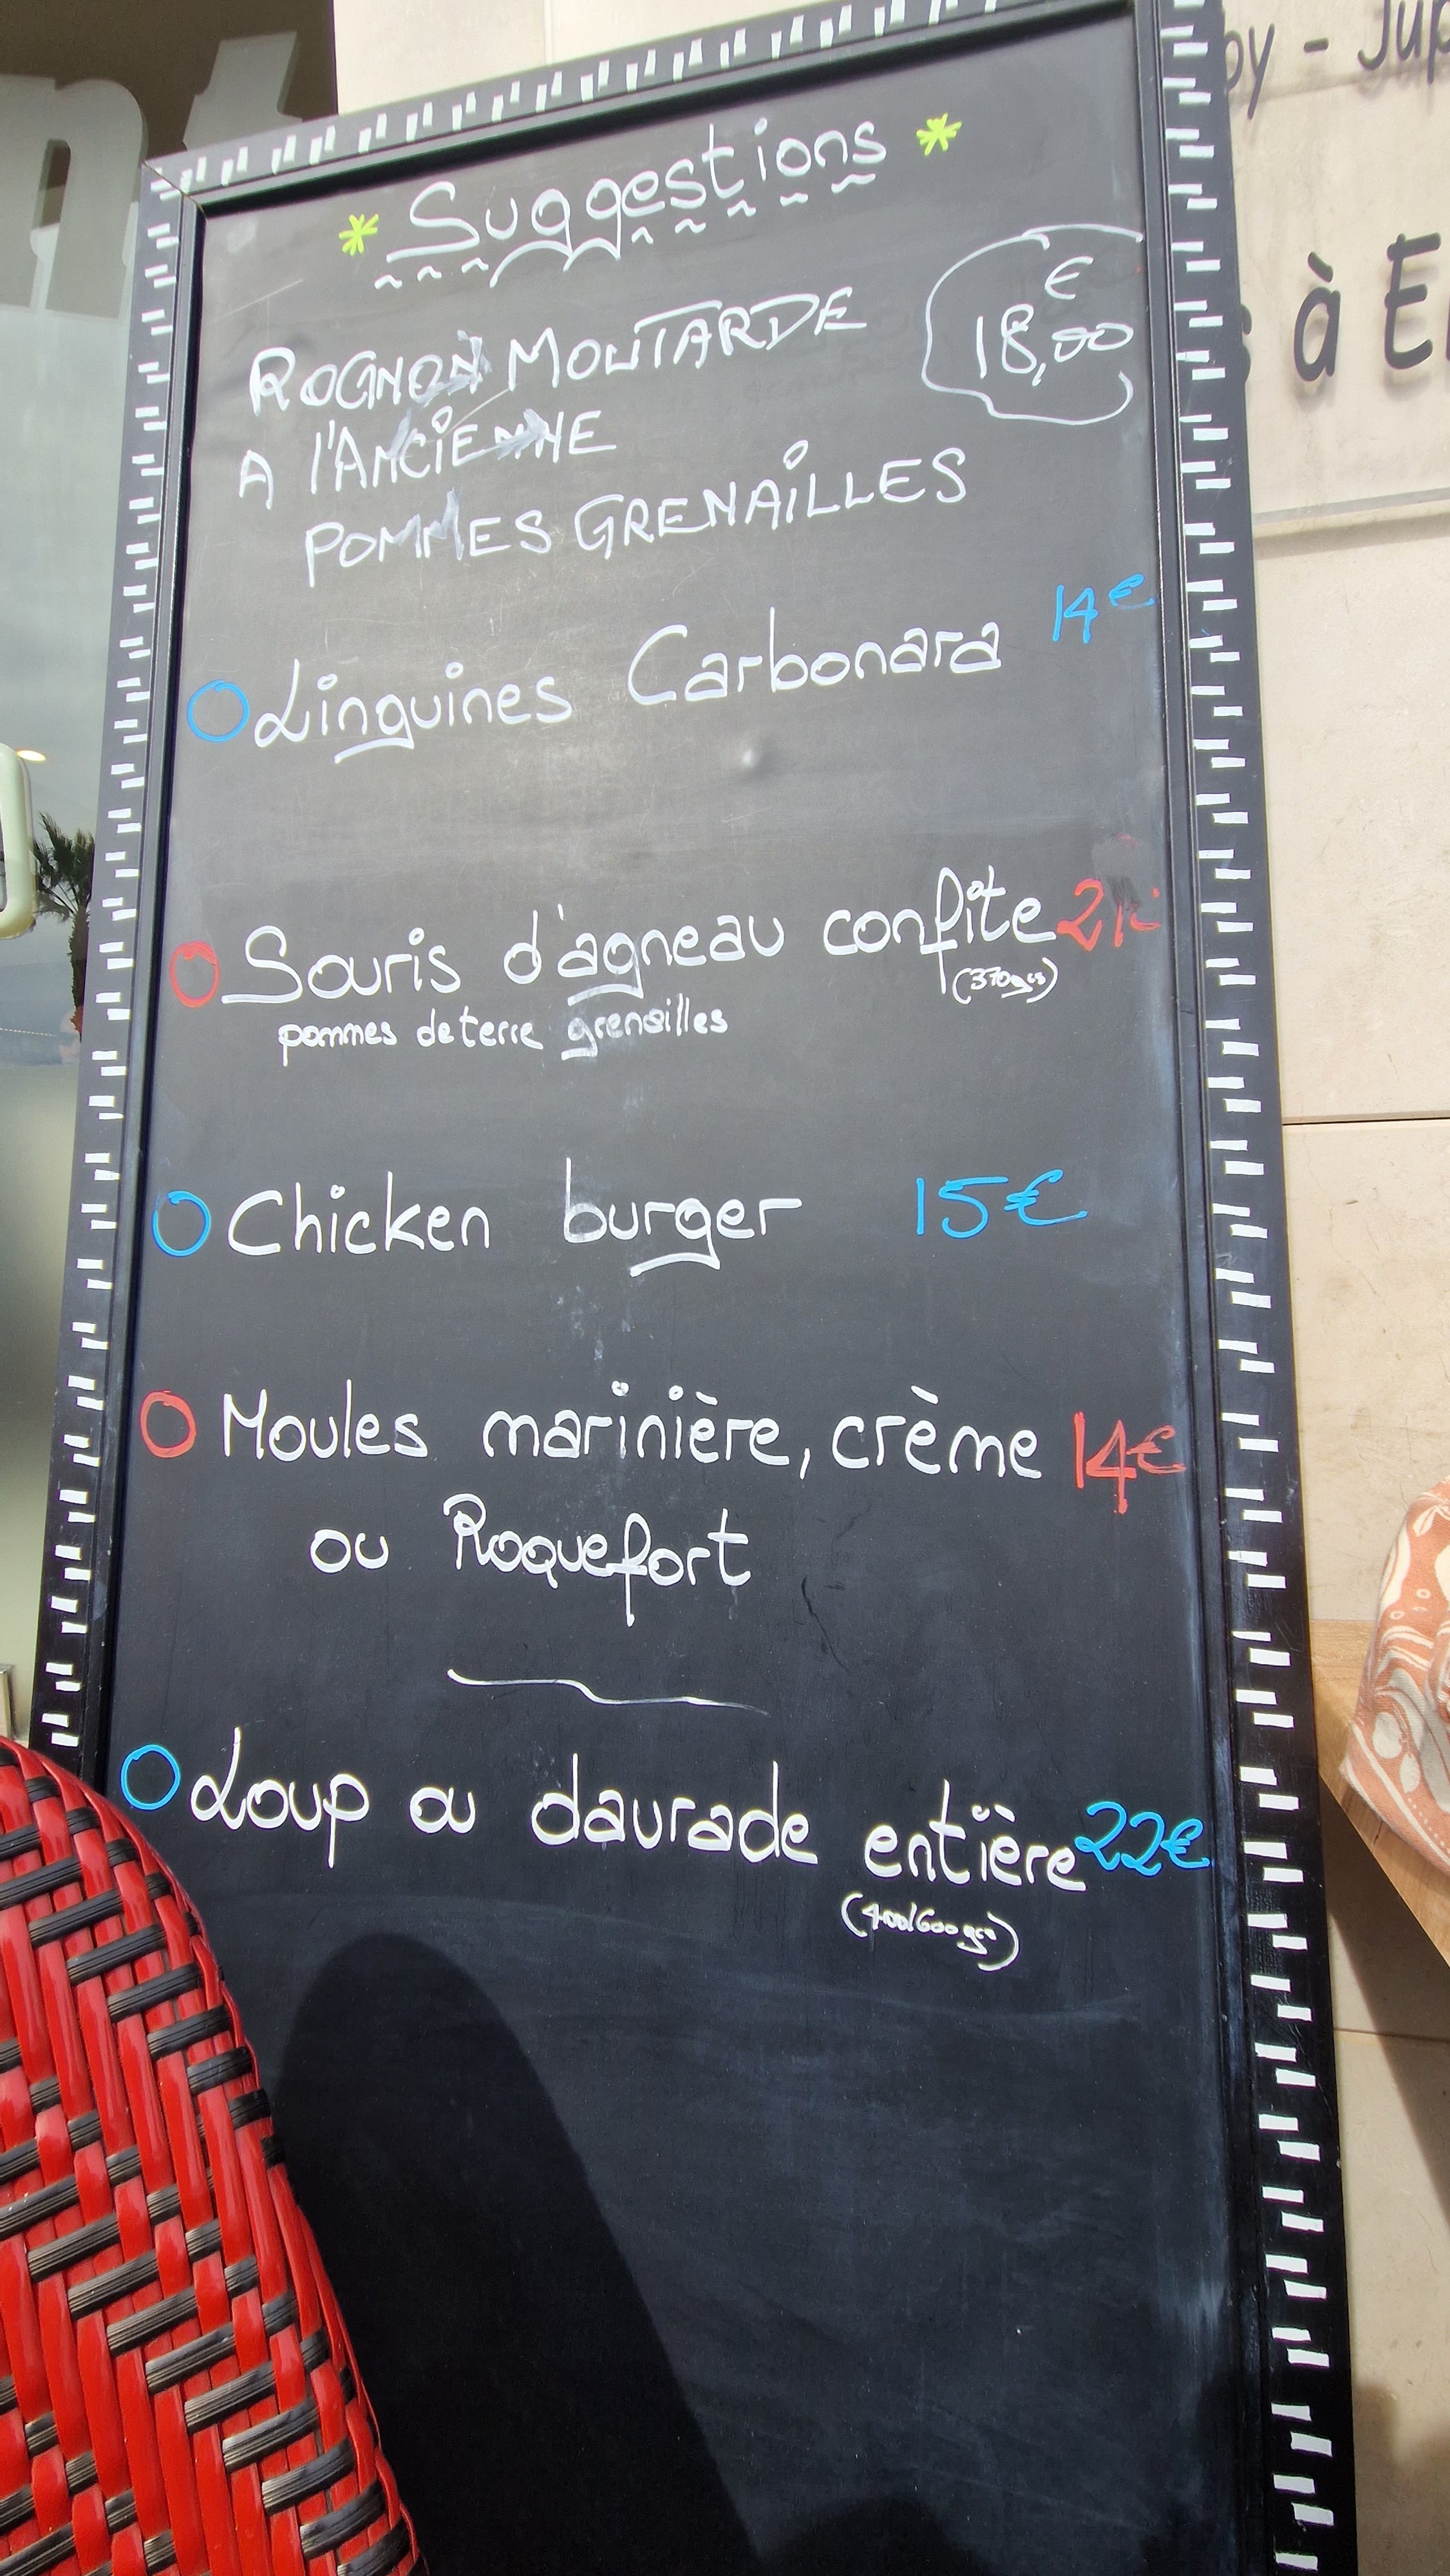 * Suggestions *
ROGNON MOUTARDE
€
18,00
A l'ANCiENNE
POMMES GRENAiLLES
Linguines Carbonara 14€
Souris d'agneau confite 21€
(370grs)
pommes de terre grenailles
Chicken burger 15€
Moules marinière, crème 14€
ou Roquefort
Loup ou daurade entière 22€
(400/600grs)
à